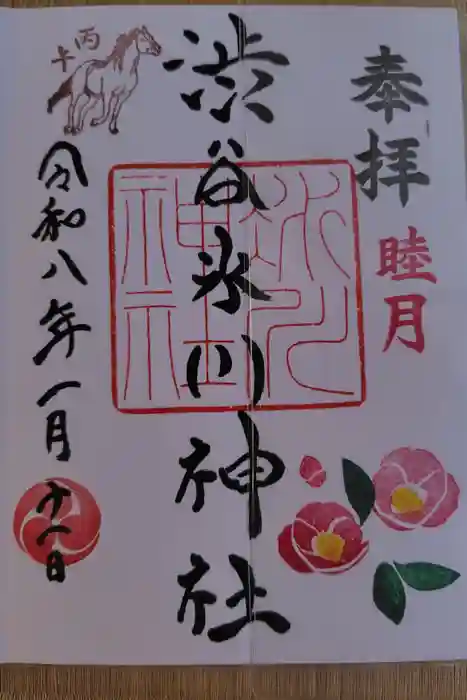 奉拝
睦月
渋谷氷川神社
氷川
神社
丙
午
令和八年一月十一日